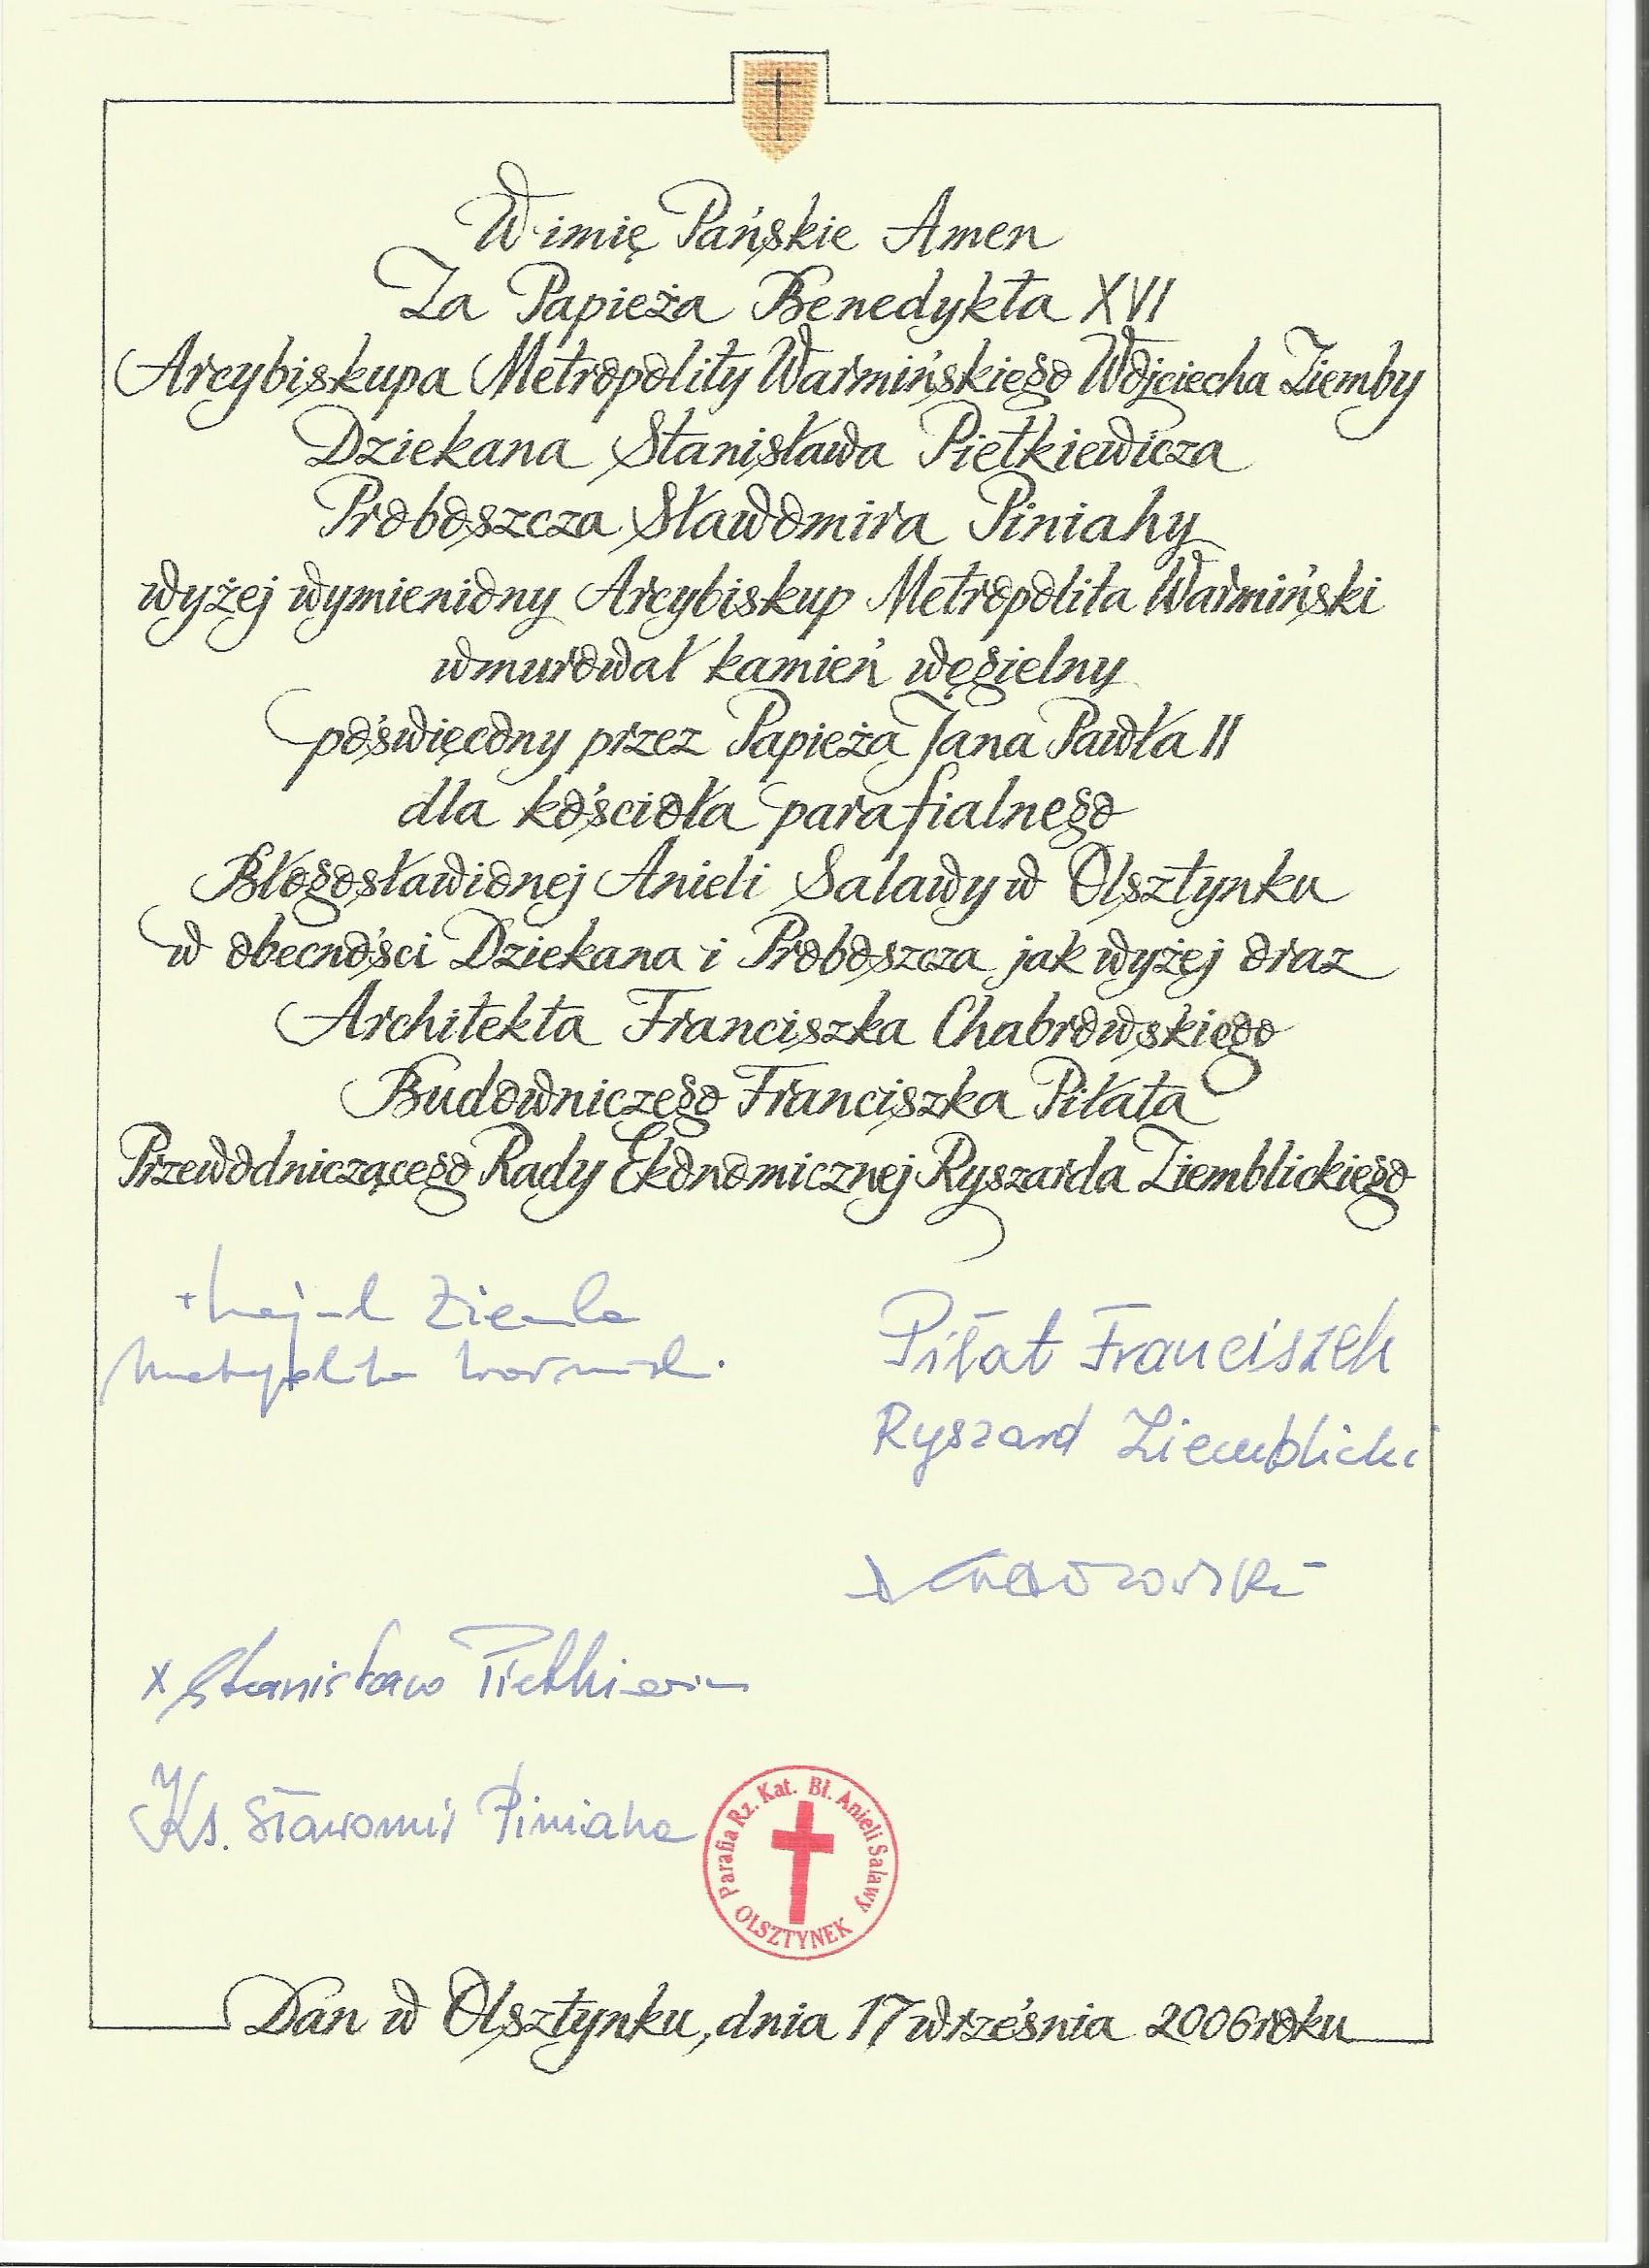 W imię Pańskie Amen
Za Papieża Benedykta XVI
Arcybiskupa Metropolity Warmińskiego Wojciecha Ziemby
Dziekana Stanisława Pietkiewicza
Proboszcza Sławomira Piniahy
wyżej wymieniony Arcybiskup Metropolita Warmiński
wmurował kamień węgielny
poświęcony przez Papieża Jana Pawła II
dla kościoła parafialnego
Błogosławionej Anieli Salawy w Olsztynku
w obecności Dziekana i Proboszcza jak wyżej oraz
Architekta Franciszka Chabrowskiego
Budowniczego Franciszka Piłata
Przewodniczącego Rady Ekonomicznej Ryszarda Ziemblickiego
Ziemba
Piłat Franciszek
Ryszard Ziemblicki
x Stanisław Pietkiewicz
Ks. Sławomir Piniaha
Parafia Rz. Kat. Bł. Anieli Salawy
OLSZTYNEK
Dan w Olsztynku, dnia 17 września 2006 roku